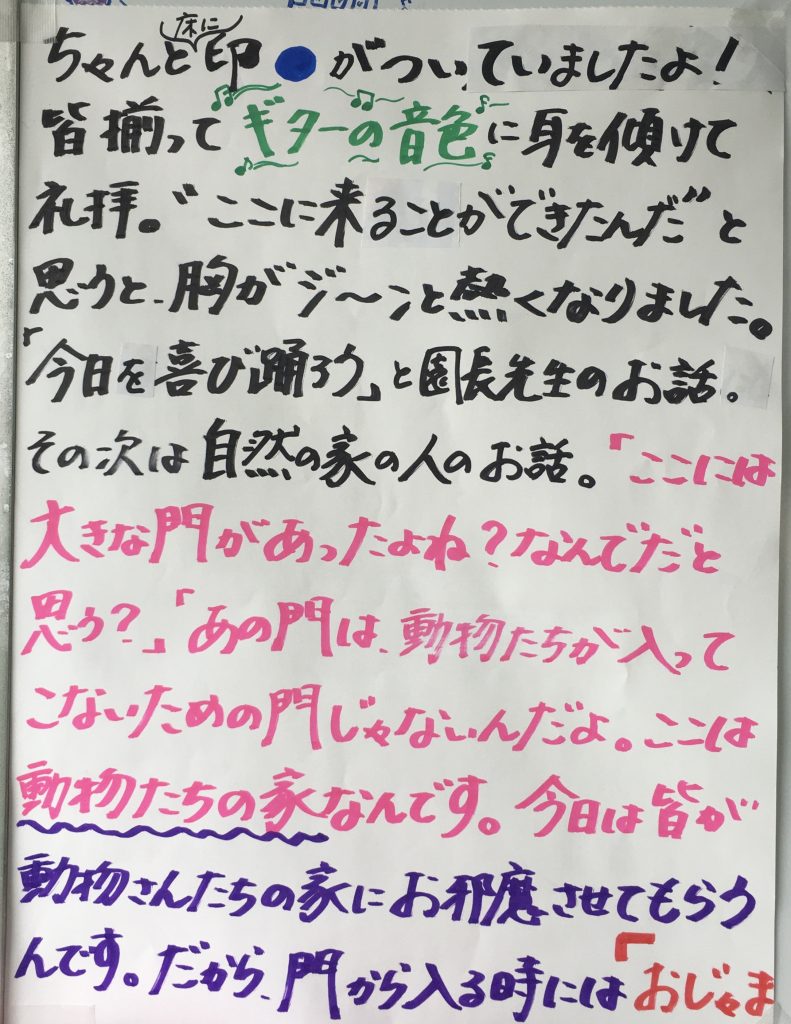 ちゃんと床に印●がついていましたよ!
皆揃ってギターの音色に耳を傾けて
礼拝。“ここに来ることができたんだ”と
思うと、胸がジ〜ンと熱くなりました。
「今日を喜び踊ろう」と園長先生のお話。
その次は自然の家の人のお話。「ここには
大きな門があったよね?なんでだと
思う?」「あの門は、動物たちが入って
こないための門じゃないんだよ。ここは
動物たちの家なんです。今日は皆が
動物さんたちの家にお邪魔させてもらう
んです。だから、門から入る時には「おじゃま